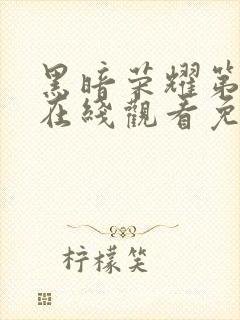 黑暗荣耀第
在綫觀看免
柠檬笑